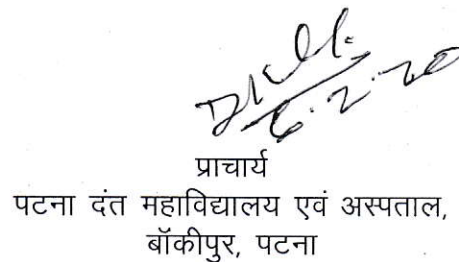 6.2.20
प्राचार्य
पटना दंत महाविद्यालय एवं अस्पताल,
बॉकीपुर, पटना